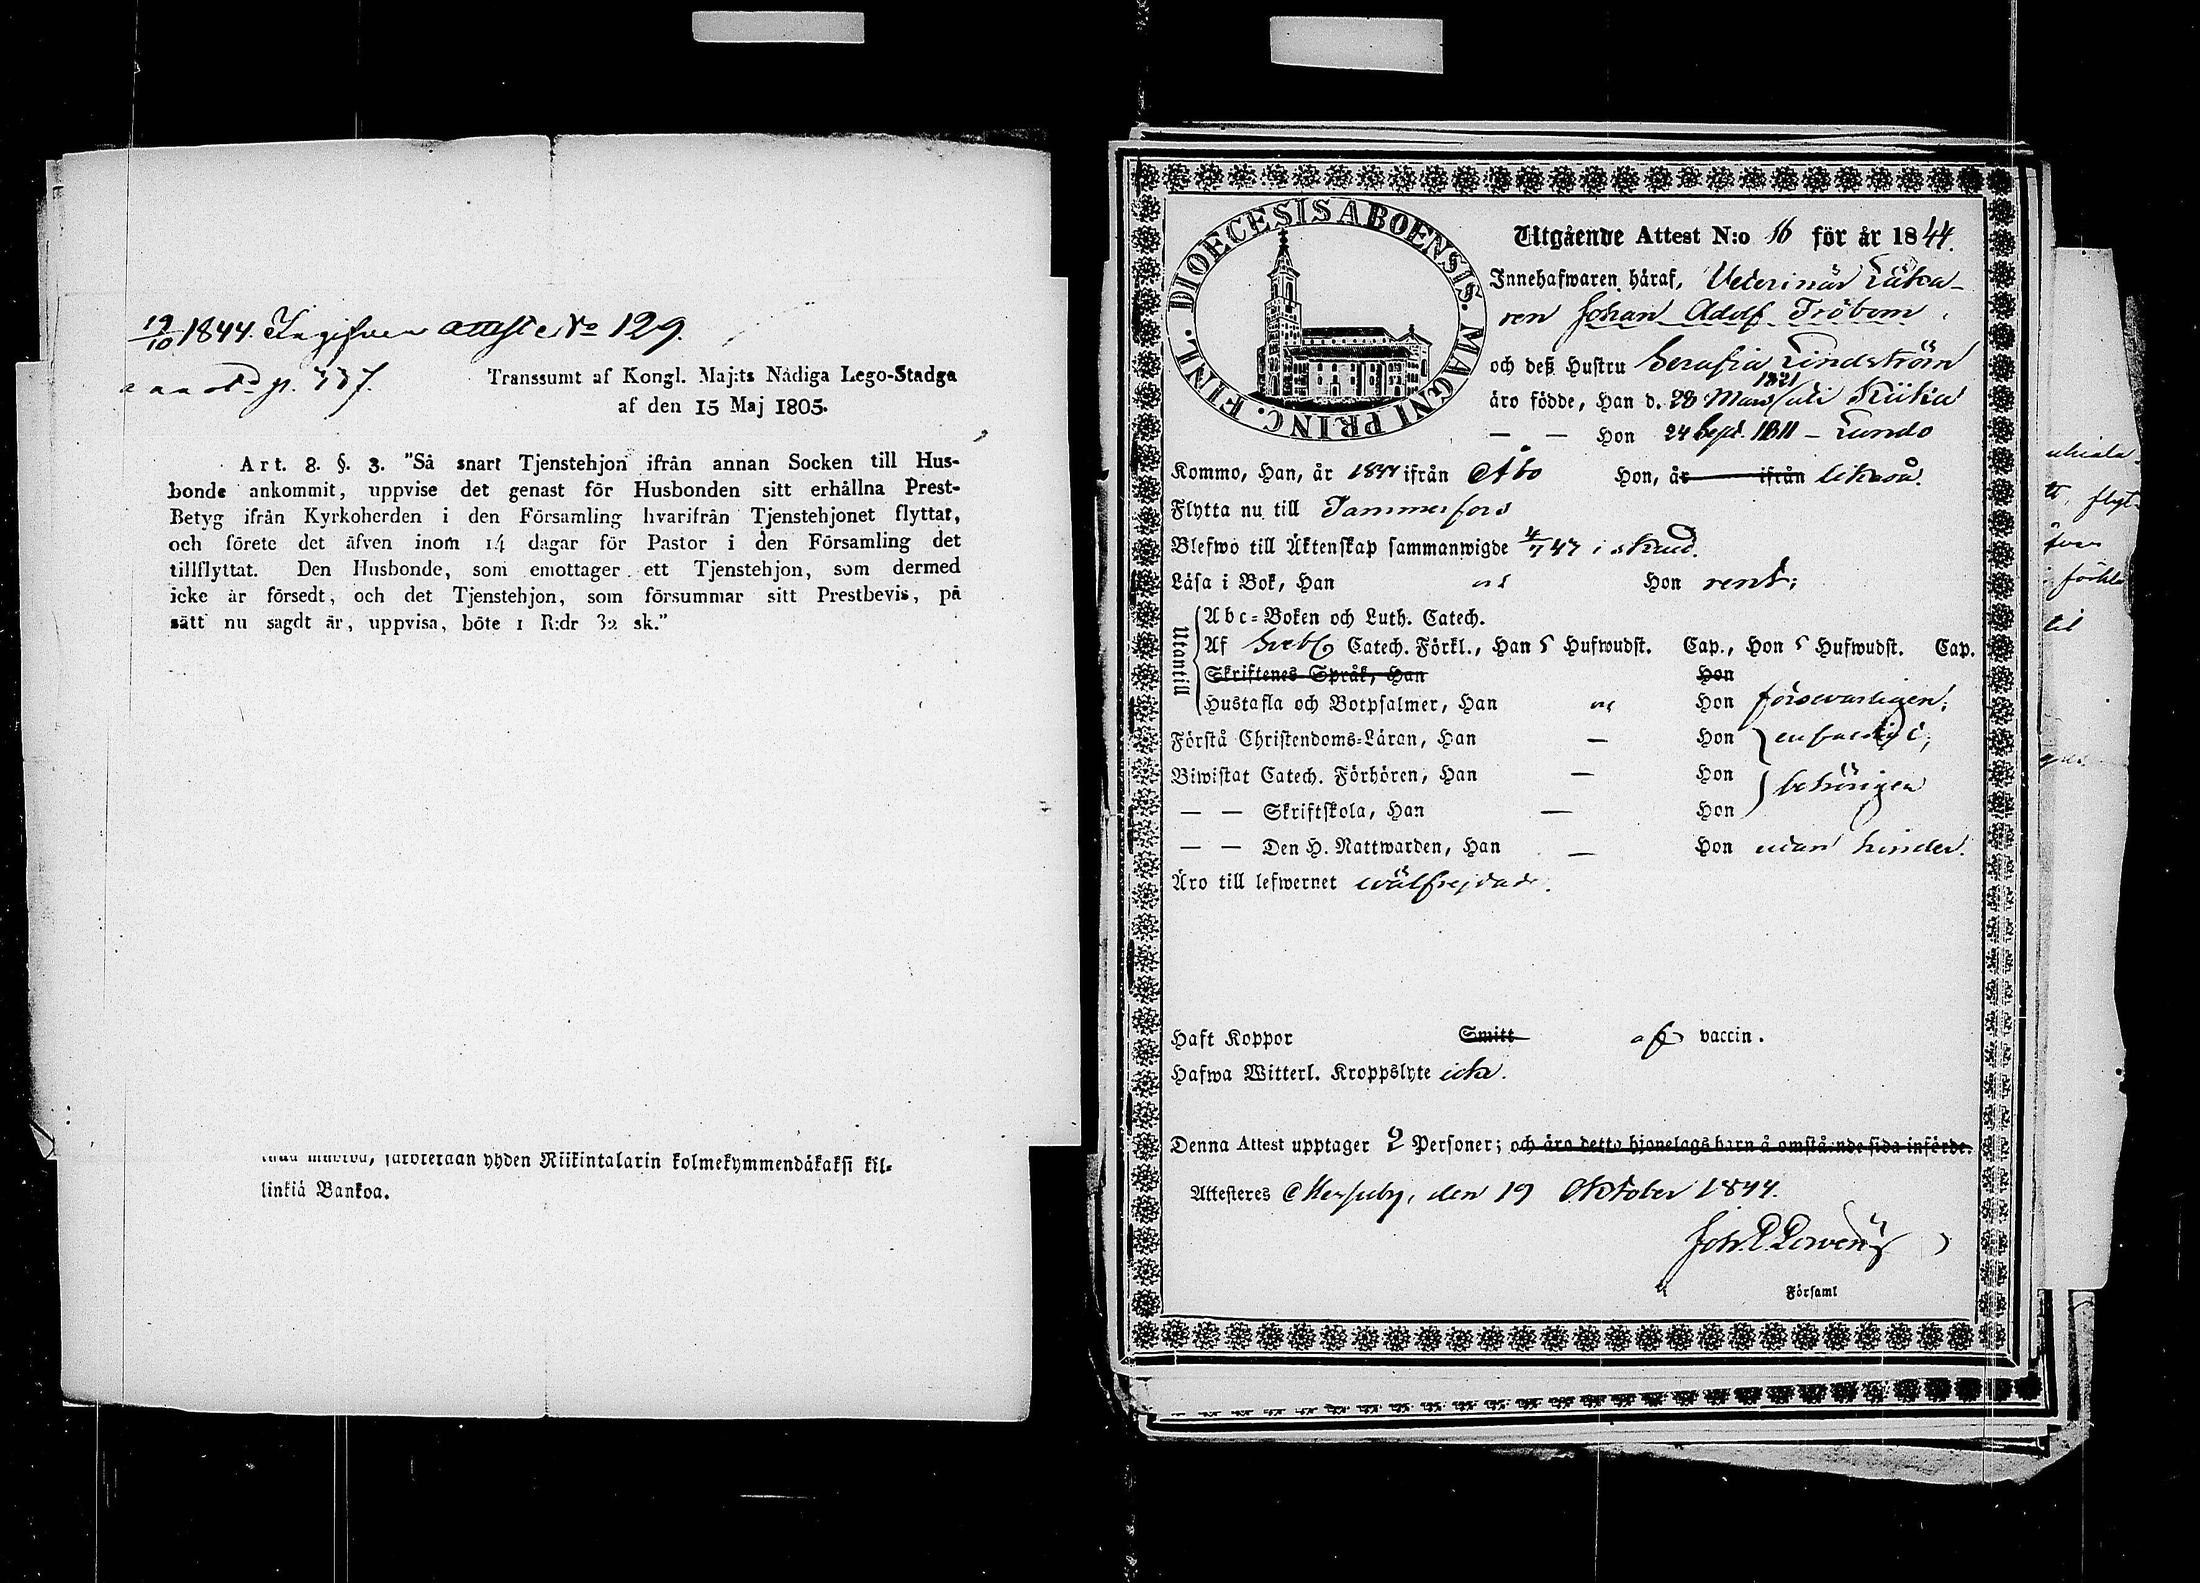 19/10 1844. Ingifven attest No 129.
p. 737.
Transsumt af Kongl. Maj:ts Nådiga Lego-Stadga
af den 15 Maj 1805.
Art. 8. §. 3. "Så snart Tjenstehjon ifrån annan Socken till Hus-
bonde ankommit, uppvise det genast för Husbonden sitt erhållna Prest-
Betyg ifrån Kyrkoherden i den Församling hvarifrån Tjenstehjonet flyttat,
och förete det äfven inom 14 dagar för Pastor i den Församling det
tillflyttat. Den Husbonde, som emottager ett Tjenstehjon, som dermed
icke är försedt, och det Tjenstehjon, som försummar sitt Prestbevis, på
sätt nu sagdt är, uppvisa, böte 1 R:dr 32 sk."
yhden Riikintalarin kolmekymmendäkaksi kil-
linkiä Bankoa.
DIOECESIS ABOENSIS. MAGNI PRINC. FINL.
Utgående Attest N:o 16 för år 1844.
Innehafwaren häraf, Veterinär Läka-
ren Johan Adolf Fröbom
och deß Hustru Serafia Lindström
äro födde, Han d. 28 Mars 1821 uti
— — Hon 24 Sept. 1811 – Lundo
Kommo, Han, år 1844 ifrån Åbo Hon, år ifrån likaså.
Flytta nu till Tammerfors
Blefwo till Äktenskap sammanwigde i
Läsa i Bok, Han Hon rent;
Utantill
Abc-Boken och Luth. Catech.
Af Sveb. Catech. Förkl., Han 5 Hufwudst. Cap., Hon 5 Hufwudst. Cap.
Skriftenes Språk, Han Hon
Hustafla och Botpsalmer, Han Hon försvarligen;
Förstå Christendoms-Läran, Han — Hon enfaldigt;
Biwistat Catech. Förhören, Han — Hon behörigen
— — Skriftskola, Han — Hon
— — Den H. Nattwarden, Han — Hon utan hinder.
Äro till lefwernet wälfrejdade.
Haft Koppor Smitt af vaccin.
Hafwa Witterl. Kroppslyte icke.
Denna Attest upptager 2 Personer; och äro detta hjonelags barn å omstående sida införde.
Attesteres den 19 Oktober 1844.
Joh.
Församl